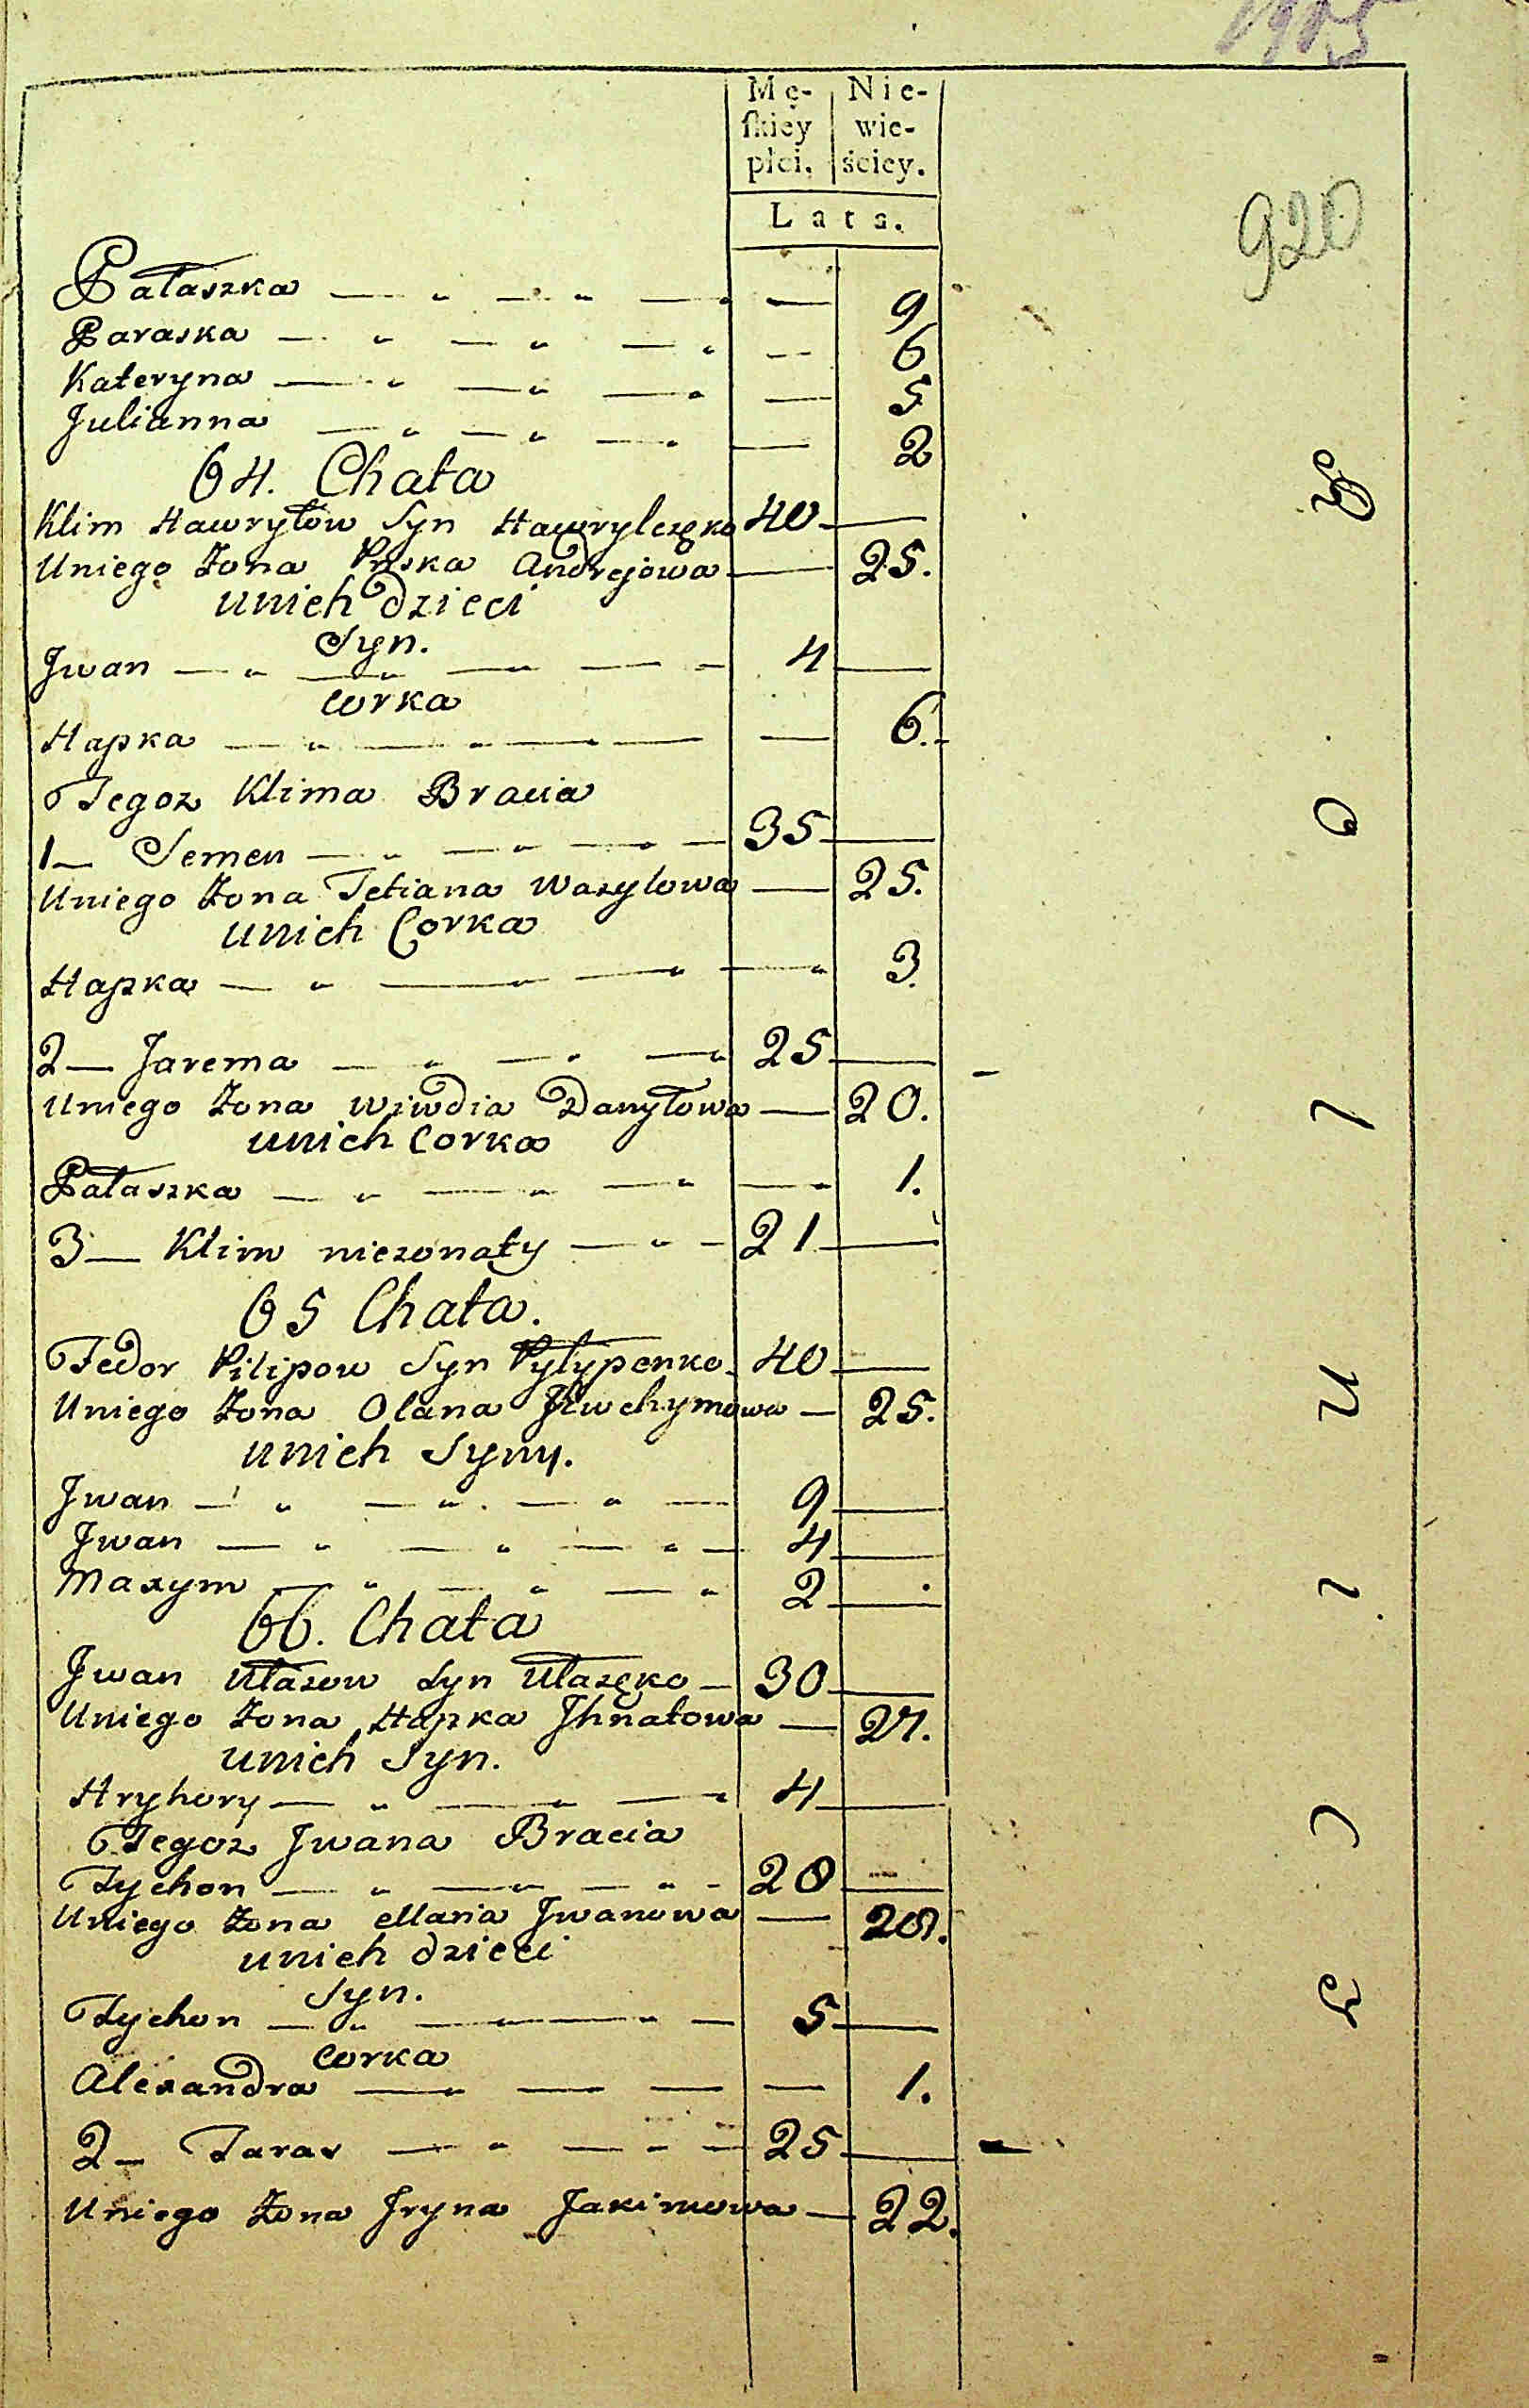 Mę- Nie-
skiey wie-
płci. ściey.
Lata.
920
Pałaszka — 9
Paraska — 6
Kateryna — 5
Julianna — 2
64. Chata
Klim Hawryłow Syn Hawrylczęko 40 —
Uniego Żona Pryska Andrejowa — 25.
unich dzieci
Syn.
Jwan — 4 —
corka
Hapka — 6.
Tegoz Klima Bracia
1 — Semen — 35 —
Uniego Żona Tetiana Wasylowa — 25.
unich Corka
Hapka — 3.
2 — Jarema — 25 —
Uniego Żona Wiwdia Danyłowa — 20.
unich Corka
Pałaszka — 1.
3 — Klim niezonaty — 21 —
65 Chata.
Fedor Pilipow Syn Pyłypenko 40 —
Uniego Żona Olana Jiwchymowa — 25.
unich Syny.
Jwan — 9 —
Jwan — 4 —
Maxym — 2 —
66. Chata
Jwan Ułasow Syn Ułasęko — 30 —
Uniego Żona Hapka Jhnatowa — 27.
unich Syn.
Hryhory — 4 —
Tegoż Jwana Bracia
Tychon — 28 —
Uniego Żona Maria Jwanowa —
unich dzieci
Syn.
Tychon — 5 —
Corka
Alexandra — 1.
2 — Taras — 25 —
Uniego Żona Jryna Jakimowa — 22.